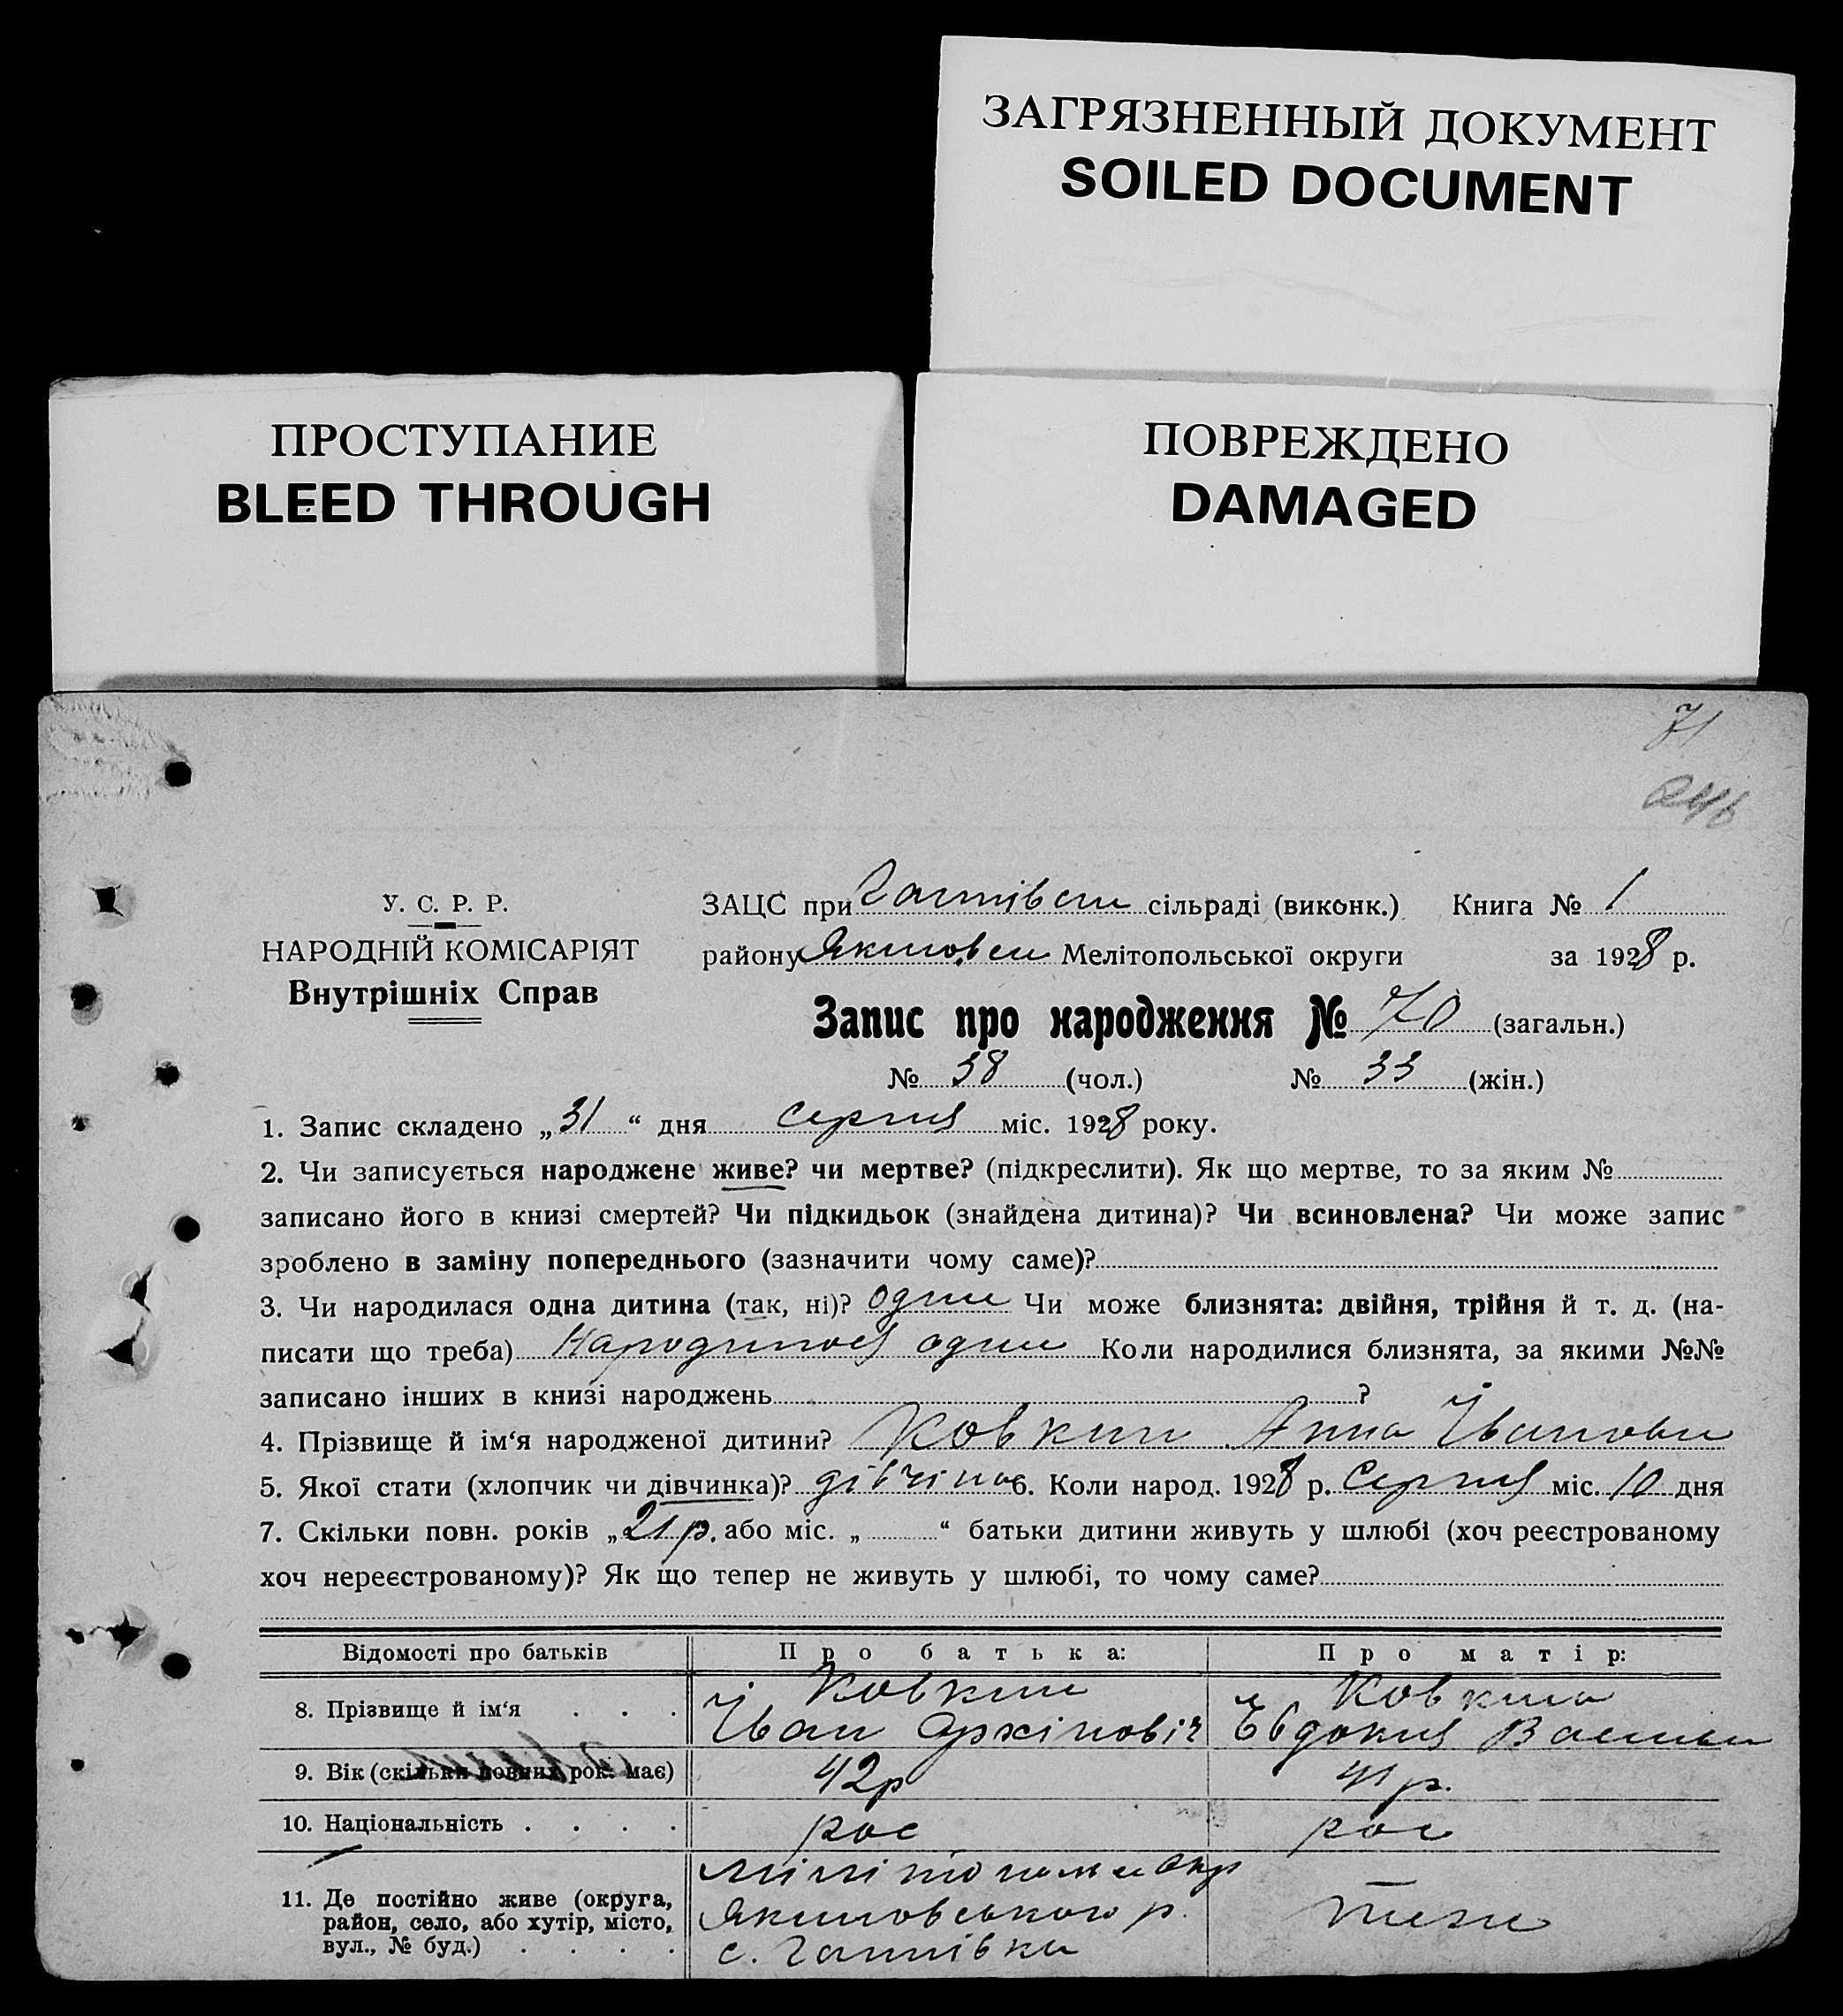 ЗАГРЯЗНЕННЫЙ ДОКУМЕНТ
SOILED DOCUMENT
ПРОСТУПАНИЕ
BLEED THROUGH
ПОВРЕЖДЕНО
DAMAGED
71
У. С. Р. Р.
НАРОДНІЙ КОМІСАРІЯТ
Внутрішніх Справ
ЗАЦС при сільраді (виконк.) Книга № 1
району Мелітопольської округи за 1928 р.
Запис про народження № 70 (загальн.)
№ 38 (чол.) № 33 (жін.)
1. Запис складено „31“ дня Серпня міс. 1928 року.
2. Чи записується народжене живе? чи мертве? (підкреслити). Як що мертве, то за яким №
записано його в книзі смертей? Чи підкидьок (знайдена дитина)? Чи всиновлена? Чи може запис
зроблено в заміну попереднього (зазначити чому саме)?
3. Чи народилася одна дитина (так, ні)? одне Чи може близнята: двійня, трійня й т. д. (на-
писати що треба) одне Коли народилися близнята, за якими №№
записано інших в книзі народжень ?
4. Прізвище й ім‘я народженої дитини? Ковкин Анна
5. Якої стати (хлопчик чи дівчинка)? дівчіна 6. Коли народ. 1928 р. Серпня міс. 10 дня
7. Скільки повн. років „21 р. або міс. „ “ батьки дитини живуть у шлюбі (хоч реєстрованому
хоч нереєстрованому)? Як що тепер не живуть у шлюбі, то чому саме?
Відомості про батьків Про батька: Про матір:
8. Прізвище й ім‘я . . . Ковкин Ковкина
Іван Архіповіч Евдокия
9. Вік (скільки повних рок. має) 42 р 41 р.
10. Національність . . . . рос рос
11. Де постійно живе (округа, район, село, або хутір, місто, вул., № буд.) . . . .
Якимовського р.